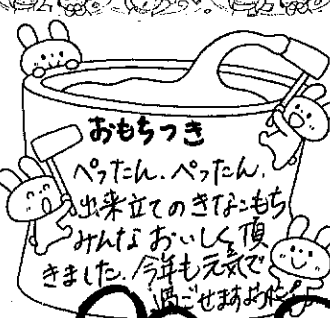 おもちつき
ぺったん、ぺったん、
出来立てのきなこもち
みんなおいしく頂
きました。今年も元気で
過ごせますように